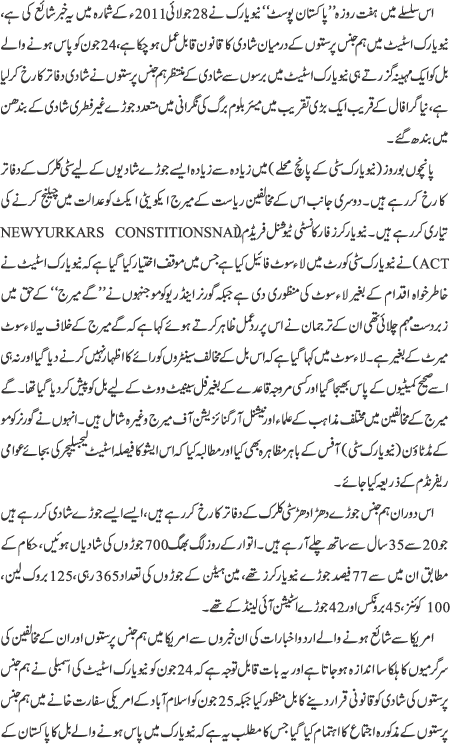 اس سلسلے میں ہفت روزہ ’’پاکستان پوسٹ‘‘ نیویارک نے 28 جولائی 2011ء کے شمارہ میں یہ خبر شائع کی ہے،
نیویارک اسٹیٹ میں ہم جنس پرستوں کے درمیان شادی کا قانون قابل عمل ہو چکا ہے، 24 جون کو پاس ہونے والے
بل کو ایک مہینہ گزرتے ہی نیویارک اسٹیٹ میں برسوں سے شادی کے منتظر ہم جنس پرستوں نے شادی دفاتر کا رخ کر لیا
ہے، نیا گرا فال کے قریب ایک بڑی تقریب میں میئر بلوم برگ کی نگرانی میں متعدد جوڑے غیر فطری شادی کے بندھن
میں بندھ گئے۔
پانچوں بوروز (نیویارک سٹی کے پانچ محلے) میں زیادہ سے زیادہ ایسے جوڑے شادیوں کے لیے سٹی کلرک کے دفاتر
کا رخ کر رہے ہیں۔ دوسری جانب اس کے مخالفین ریاست کے میرج ایکویٹی ایکٹ کو عدالت میں چیلنج کرنے کی
تیاری کر رہے ہیں۔ نیویارکرز فار کانسٹی ٹیوشنل فریڈم (NEWYURKARS CONSTITIONSNAL
ACT) نے نیویارک سٹی کورٹ میں لاء سوٹ فائیل کیا ہے جس میں موقف اختیار کیا گیا ہے کہ نیویارک اسٹیٹ نے
خاطر خواہ اقدام کے بغیر لاء سوٹ کی منظوری دی ہے جبکہ گورنر اینڈریو کومو جنہوں نے ’’گے میرج‘‘ کے حق میں
زبردست مہم چلائی تھی ان کے ترجمان نے اس پر ردعمل ظاہر کرتے ہوئے کہا ہے کہ گے میرج کے خلاف یہ لاء سوٹ
میرٹ کے بغیر ہے۔ لاء سوٹ میں کہا گیا ہے کہ اس بل کے مخالف سینٹروں کو رائے کا اظہار نہیں کرنے دیا گیا اور نہ ہی
اسے صحیح کمیٹیوں کے پاس بھیجا گیا اور کسی مروجہ قاعدے کے بغیر فل سینیٹ ووٹ کے لیے بل کو پیش کر دیا گیا تھا۔ گے
میرج کے مخالفین میں مختلف مذاہب کے علماء اور نیشنل آرگنائزیشن آف میرج وغیرہ شامل ہیں۔ انہوں نے گورنر کومو
کے مڈٹاؤن (نیویارک سٹی) آفس کے باہر مظاہرہ بھی کیا اور مطالبہ کیا کہ اس ایشو کا فیصلہ اسٹیٹ لیجسلیچر کی بجائے عوامی
ریفرنڈم کے ذریعہ کیا جائے۔
اس دوران ہم جنس جوڑے دھڑا دھڑ سٹی کلرک کے دفاتر کا رخ کر رہے ہیں، ایسے ایسے جوڑے شادی کر رہے ہیں
جو 20 سے 35 سال سے ساتھ چلے آ رہے ہیں۔ اتوار کے روز لگ بھگ 700 جوڑوں کی شادیاں ہوئیں، حکام کے
مطابق ان میں سے 77 فیصد جوڑے نیویارکرز تھے، مین ہیٹن کے جوڑوں کی تعداد 365 رہی، 125 بروک لین،
100 کوئنز، 45 برونکس اور 42 جوڑے اسٹیٹن آئی لینڈ کے تھے۔
امریکا سے شائع ہونے والے اردو اخبارات کی ان خبروں سے امریکا میں ہم جنس پرستوں اور ان کے مخالفین کی
سرگرمیوں کا ہلکا سا اندازہ ہو جاتا ہے اور یہ بات قابل توجہ ہے کہ 24 جون کو نیویارک اسٹیٹ کی اسمبلی نے ہم جنس
پرستوں کی شادی کو قانونی قرار دینے کا بل منظور کیا جبکہ 25 جون کو اسلام آباد کے امریکی سفارت خانے میں ہم جنس
پرستوں کے مذکورہ اجتماع کا اہتمام کیا گیا جس کا مطلب یہ ہے کہ نیویارک میں پاس ہونے والے بل کا پاکستان کے